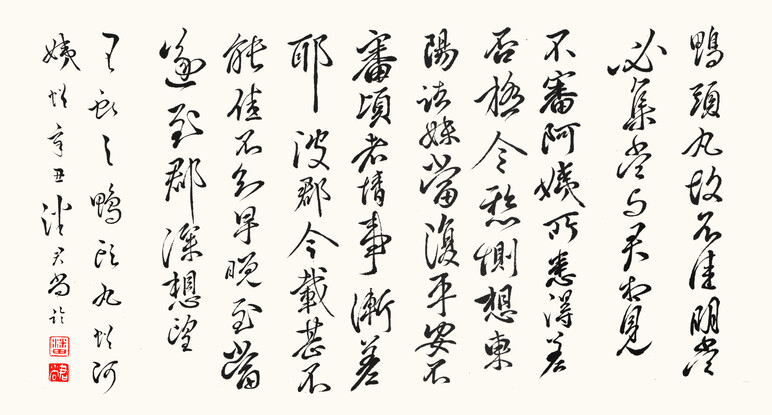 鴨頭丸故不佳明當
必集當与君相見
不審阿姨所患得差
否極令懸惻想東
陽諸妹當復平安不
審頃者情事漸差
耶波郡今載甚不
能佳不知早晚至當
遂至郡深想望
王獻之鴨頭丸帖阿
姨帖辛丑君尚